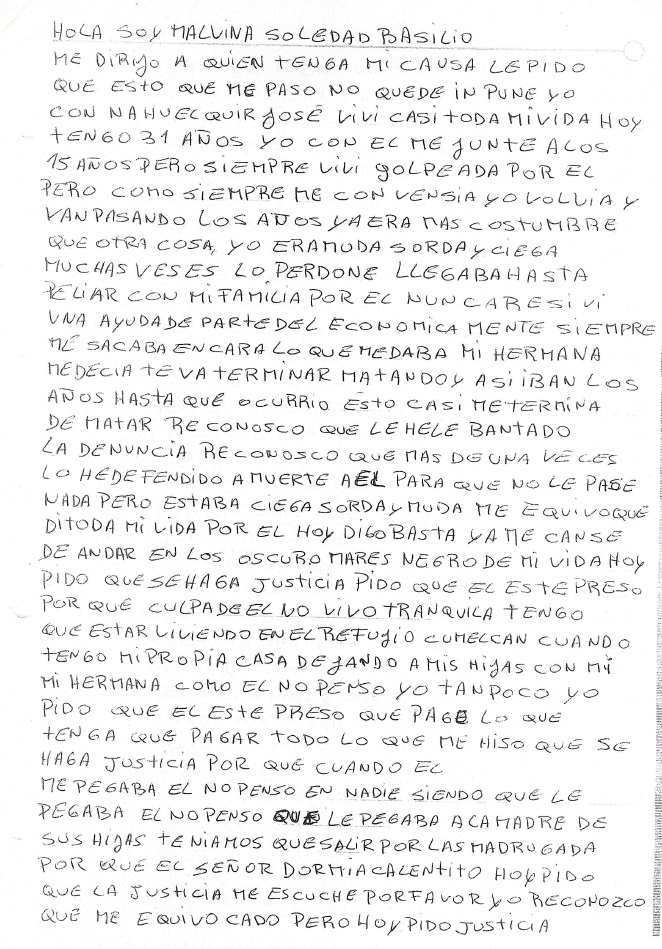 HOLA SOY MALVINA SOLEDAD BASILIO
ME DIRIJO A QUIEN TENGA MI CAUSA LE PIDO
QUE ESTO QUE ME PASO NO QUEDE IN PUNE YO
CON NAHUELQUIR JOSÉ VIVI CASI TODA MI VIDA HOY
TENGO 31 AÑOS YO CON EL ME JUNTE A LOS
15 AÑOS PERO SIEMPRE VIVI GOLPEADA POR EL
PERO COMO SIEMPRE ME CON VENSIA YO VOLVIA Y
VAN PASANDO LOS AÑOS YA ERA MAS COSTUMBRE
QUE OTRA COSA, YO ERA MUDA SORDA Y CIEGA
MUCHAS VESES LO PERDONE LLEGABA HASTA
PELIAR CON MI FAMILIA POR EL NUNCA RESIVI
UNA AYUDA DE PARTE DEL ECONOMICA MENTE SIEMPRE
ME SACABA EN CARA LO QUE ME DABA MI HERMANA
ME DECIA TE VA TERMINAR MATANDO Y ASI IBAN LOS
AÑOS HASTA QUE OCURRIO ESTO CASI ME TERMINA
DE MATAR RECONOSCO QUE LE HE LEBANTADO
LA DENUNCIA RECONOSCO QUE MAS DE UNA VECES
LO HE DEFENDIDO A MUERTE A EL PARA QUE NO LE PASE
NADA PERO ESTABA CIEGA SORDA Y MUDA ME EQUIVOQUE
DI TODA MI VIDA POR EL HOY DIGO BASTA YA ME CANSE
DE ANDAR EN LOS OSCURO MARES NEGRO DE MI VIDA HOY
PIDO QUE SE HAGA JUSTICIA PIDO QUE EL ESTE PRESO
POR QUE CULPA DE EL NO VIVO TRANQUILA TENGO
QUE ESTAR VIVIENDO EN EL REFUGIO CUMELCAN CUANDO
TENGO MI PROPIA CASA DEJANDO A MIS HIJAS CON MI
MI HERMANA COMO EL NO PENSO YO TANPOCO YO
PIDO QUE EL ESTE PRESO QUE PAGE LO QUE
TENGA QUE PAGAR TODO LO QUE ME HISO QUE SE
HAGA JUSTICIA POR QUE CUANDO EL
ME PEGABA EL NO PENSO EN NADIE SIENDO QUE LE
PEGABA EL NO PENSO QUE LE PEGABA A CA MADRE DE
SUS HIJAS TENIAMOS QUE SALIR POR LAS MADRUGADA
POR QUE EL SEÑOR DORMIA CALENTITO HOY PIDO
QUE LA JUSTICIA ME ESCUCHE POR FAVOR YO RECONOZCO
QUE ME EQUIVOCADO PERO HOY PIDO JUSTICIA